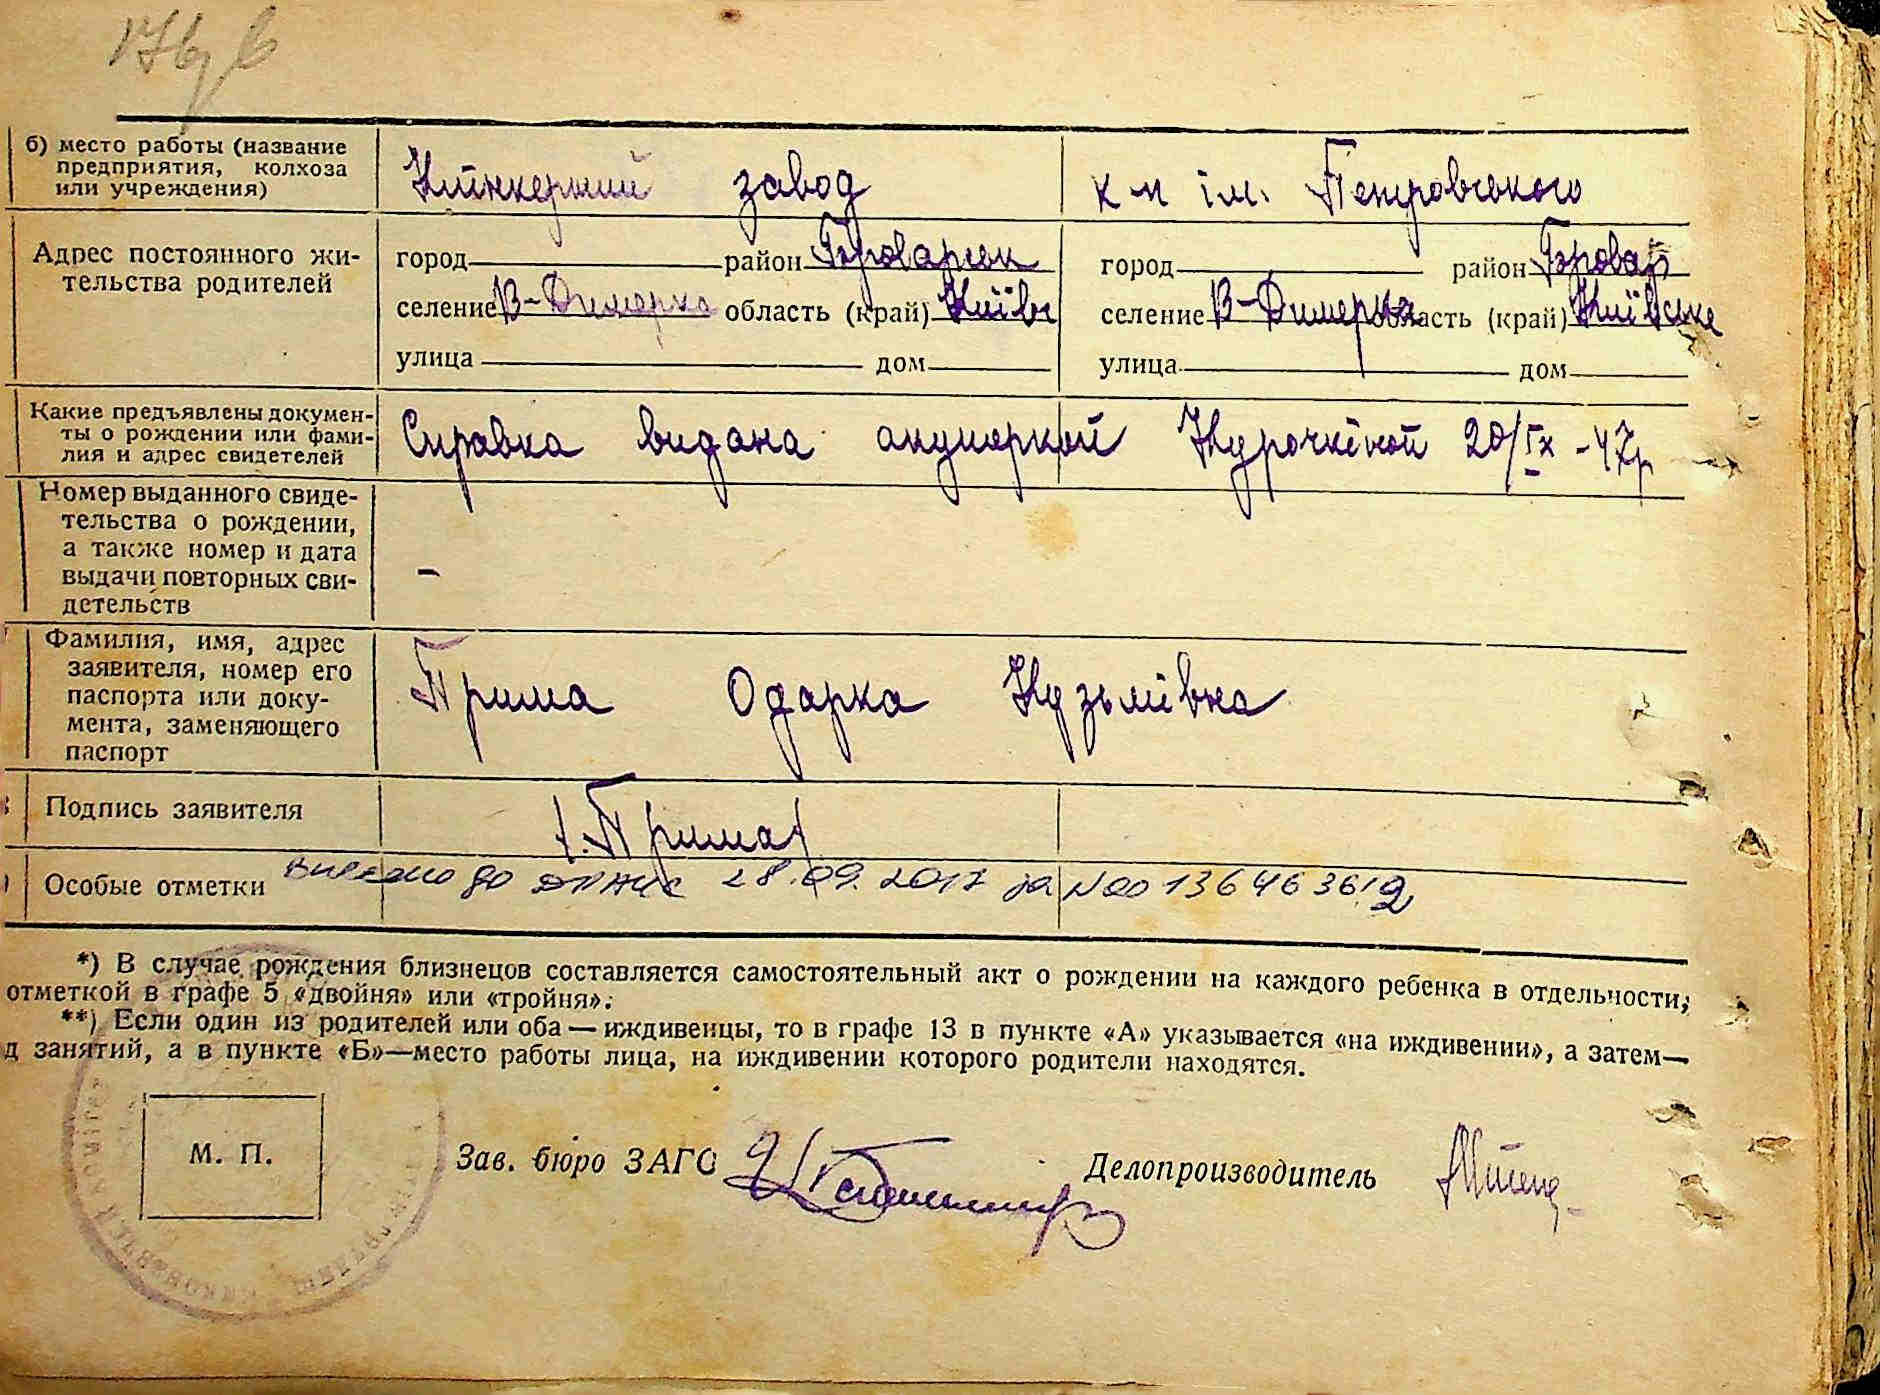 176
б) место работы (название
предприятия, колхоза
или учреждения)
Клінкерний завод
к-п ім. Петровського
Адрес постоянного жи-
тельства родителей
город район Броварськ
селение В-Димерка область (край) Київс
улица дом
город район Бровар
селение В-Димерка область (край) Київське
улица дом
Какие предъявлены докумен-
ты о рождении или фами-
лия и адрес свидетелей
Справка видана акушеркой Курочкіной 20/IX -47р
Номер выданного свиде-
тельства о рождении,
а также номер и дата
выдачи повторных сви-
детельств
-
Фамилия, имя, адрес
заявителя, номер его
паспорта или доку-
мента, заменяющего
паспорт
Прима Одарка Кузьмівна
Подпись заявителя
/Прима/
Особые отметки
внесено до 28.09.2017 за №00136463612
*) В случае рождения близнецов составляется самостоятельный акт о рождении на каждого ребенка в отдельности,
отметкой в графе 5 «двойня» или «тройня».
**) Если один из родителей или оба — иждивенцы, то в графе 13 в пункте «А» указывается «на иждивении», а затем—
д занятий, а в пункте «Б»—место работы лица, на иждивении которого родители находятся.
М. П.
Зав. бюро ЗАГС
Делопроизводитель